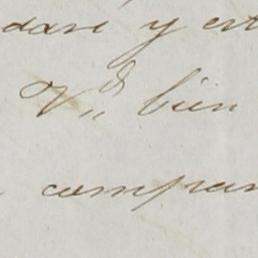 dare y est
V,,d bien
compran